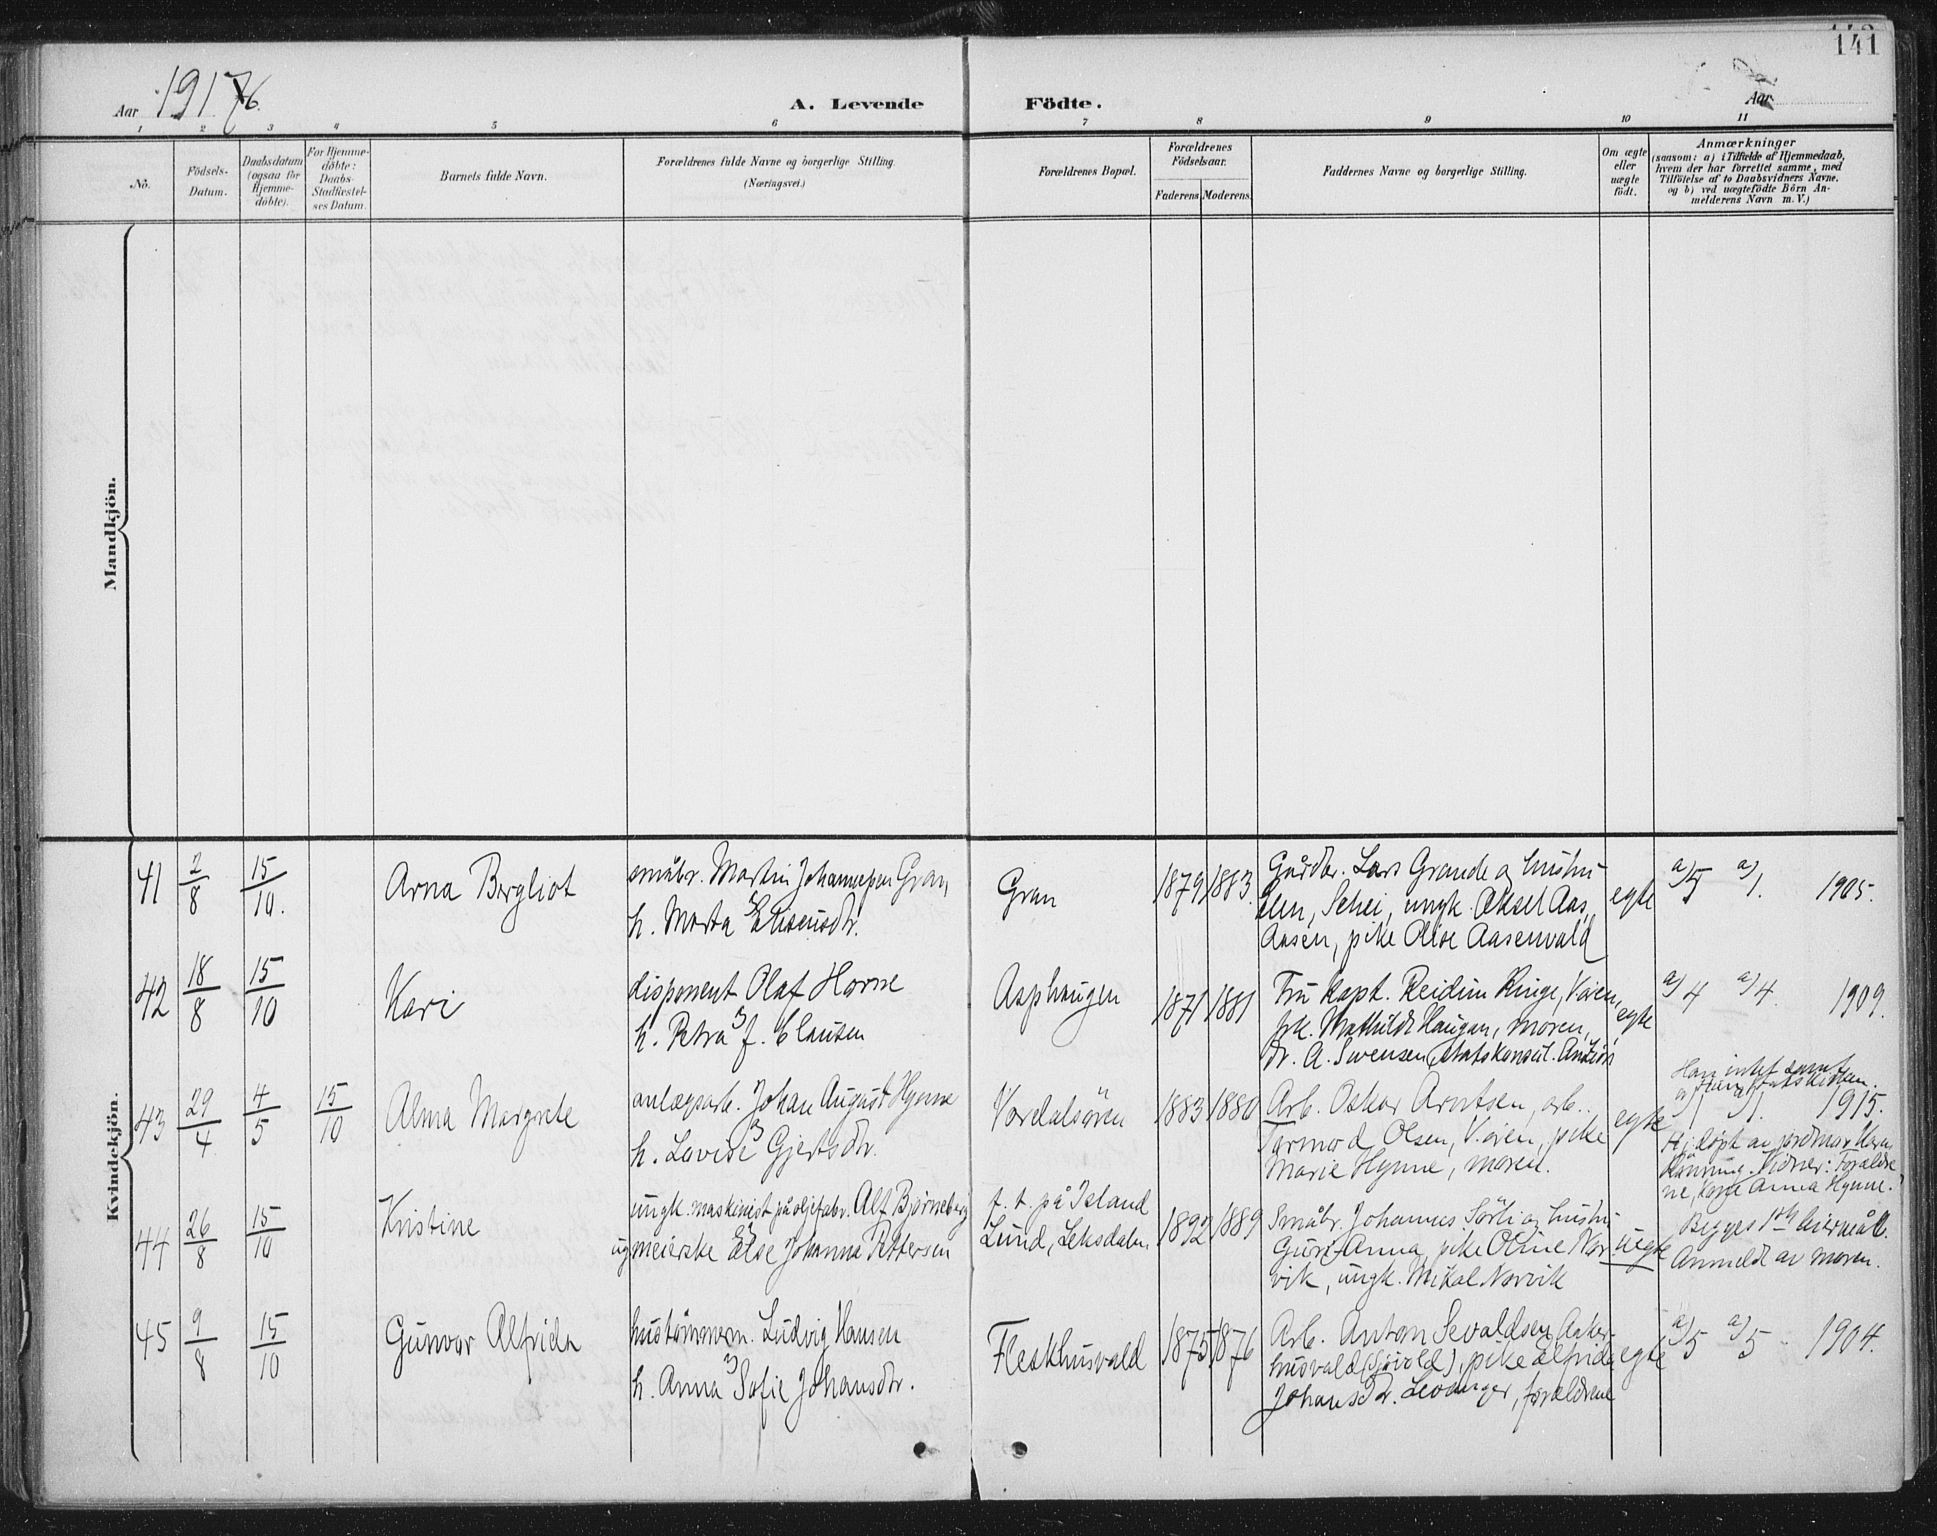 141
Aar 1916.
A. Levende Födte.
Aar
1 2 3 4 5 6 7 8 9 10 11
No.
Födsels-Datum.
Daabsdatum (ogsaa for Hjemme-døbte).
For Hjemme-døbte: Daabs-Stadfæstel-ses Datum.
Barnets fulde Navn.
Forældrenes fulde Navne og borgerlige Stilling.
(Næringsvei.)
Forældrenes Bopæl.
Forældrenes Födselsaar.
Faderens Moderens
Faddernes Navne og borgerlige Stilling.
Om ægte eller uægte født.
Anmærkninger
(saasom: a) i Tilfælde af Hjemmedaab,
hvem der har forrettet samme, med
Tilføielse af to Daabsvidners Navne.
og b) ved uægtefødte Börn An-
melderens Navn m. V.)
Mandkjön.
Kvindekjön.
41 2/8 15/10. Arna Bergliot
småbr. Martin Johannesen Gran,
h. Marta Eliseusdtr.
Gran 1879 1883
Gårdbr. Lars Grande og hustru
Elen, Schei, ungk. Aksel Aas,
Aasen, pike Olise Aasenvald
egte a/5 a/1. 1905.
42 18/8 15/10 Kari
disponent Olaf Horne
h. Petra f. Clausen
Asphaugen 1871 1881
Fru Kapt. Reidun Ringe, V.ören,
frk. Mathilde Haugan, moren,
dr. A. Svensen, statskonsul.
egte a/4 a/4. 1909.
43 29/4 4/5 15/10 Alma Margrete
anlægsarb. Johan August Hynne
h. Lovise Gjertsdtr.
Værdalsören 1883 1880
Arb. Oskar Arntsen, arb.
Tormod Olsen, V.ören, pike
Marie Hynne, moren.
egte
Han intet samf.
hun statskirken.
a/1 a/1. 1915.
Hj. döpt av jordmor
Vidner: Forældre
ne, Anna Hynne.
44 26/8 15/10 Kristine
ungk. maskinist på oljefabr. Alf Björneberg
ug meierske Else Johanna Pettersen
t. t. på Island
Lund, Leksdalen, 1892 1889
Småbr. Johannes Sörli og hustru
Guru Anna, pike Oline Nor-
vik, ungk. Mikal Norvik
uegte
Begges 1ste leiermål.
Anmeldt av moren.
45 9/8 15/10 Gunvor Alfrida
hustömmerm. Ludvig Hansen
h. Anna Sofie Johansdtr.
Fleskhusvald 1875 1876
Arb. Anton Sevaldsen Asker-
husvald (Sjövold), pike Alfrida
Johansdtr. Levanger, forældrene
egte a/5 a/5 1904.